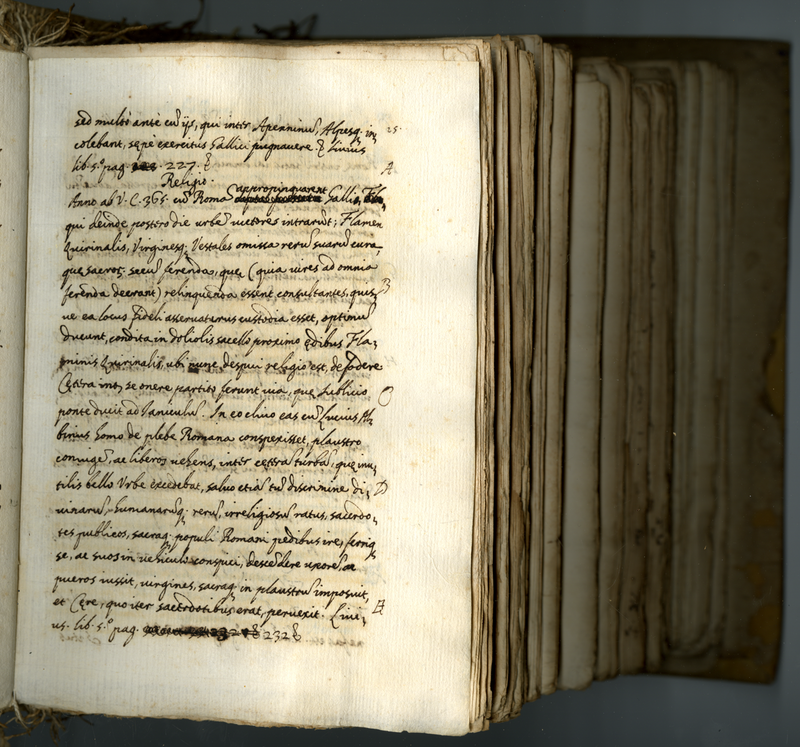 sed multo ante cũ ijs, qui inter Apenninũ, Alpesq. in, 25.
colebant, sępe exercitus Gallici pugnauere. Liuius
lib. 5.º pag. 227.
A
Religio.
Anno ab V. C. 365. cũ Romã appropinquarent Galli,
qui deinde postero die urbẽ uictores intrarũt; Flamen
Quirinalis, Virginesq; Vestales omissa rerũ suarũ cura,
quę sacroꝝ secũ ferenda, quę (quia uires ad omnia
B
ferenda deerant) relinquenda essent consultantes, quis,
ue ea locus fideli asseruaturus custodia esset, optimũ
ducunt, condita in doliolis sacello proximo ędibus Fla,
minis Quirinalis, ubi nunc despui religio est, defodere
Cętera int, se onere partito ferunt uia, quę sublicio
C
ponte ducit ad Janiculũ. In eo cliuo eas cũ Lucius Al,
binius homo de plebe Romana conspexisset, plaustro
coniugẽ, ac liberos uehens, inter cęterã turbã, quę inu,
tilis bello Vrbe excedebat, saluo etiã tũ discrimine di, D
uinarũ, humanarũq. rerũ, irreligiosũ ratus, sacerdo,
tes publicos, sacraq. populi Romani pedibus ire, ferriq.
se, ac suos in uehiculo conspici, descẽdere uxorẽ, ac
pueros iussit, uirgines, sacraq. in plaustrũ imposuit,
et Cęre, quo iter sacerdotibus erat, peruexit. Liui, E
us. lib. 5.º pag. 232